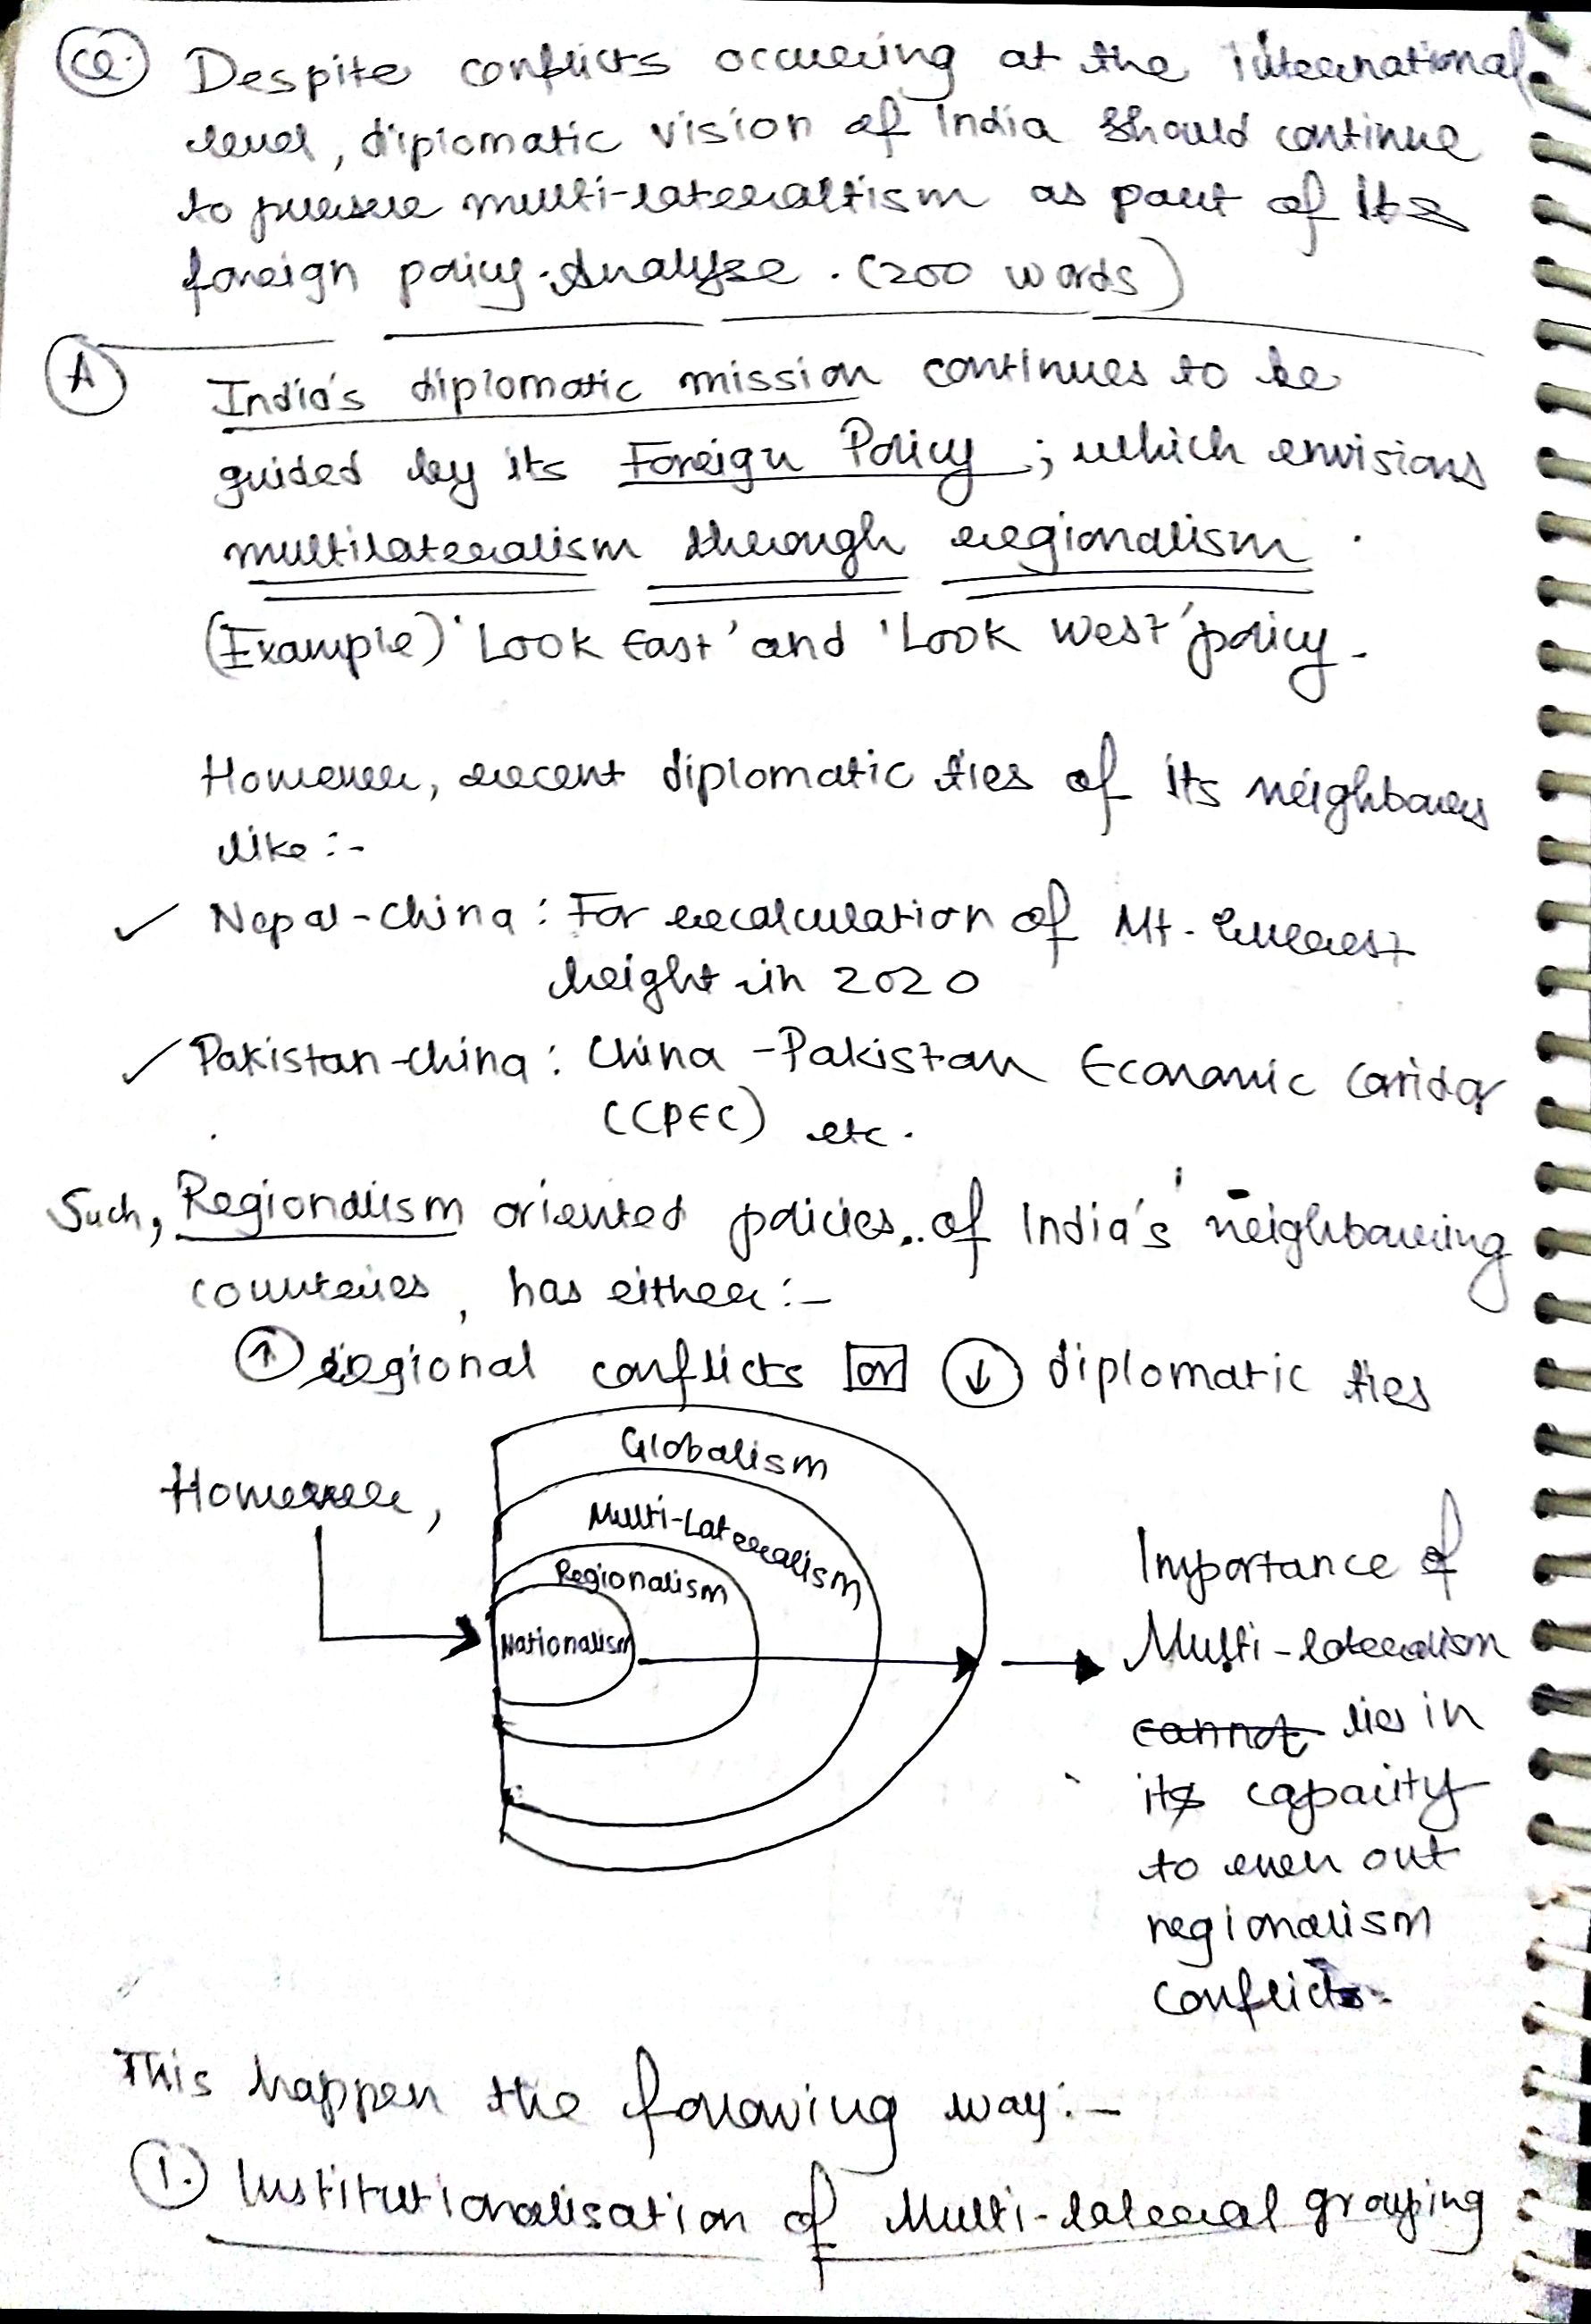 Q. Despite conflicts occuring at the international
level, diplomatic vision of India should continue
to pursue multi-lateraltism as part of its
foreign policy. Analyse. (200 words)
A India's diplomatic mission continues to be
guided by its Foreign Policy; which envisions
multilateralism through regionalism.
(Example) 'Look East' and 'Look West' policy.
However, recent diplomatic ties of its neighbours
like :-
✓ Nepal-China : For recalculation of Mt. Everest
height in 2020
✓ Pakistan-China : China-Pakistan Economic Coridor
(CPEC) etc.
Such, Regionalism oriented policies of India's neighbouring
countries, has either :-
↑ regional conflicts or ↓ diplomatic ties
However,
Globalism
Multi-Lateralism
Regionalism
Nationalism
Importance of
Multi-lateralism
cannot lies in
its capacity
to even out
regionalism
conflicts.
This happen the following way :-
1. Institutionalisation of Multi-lateral grouping